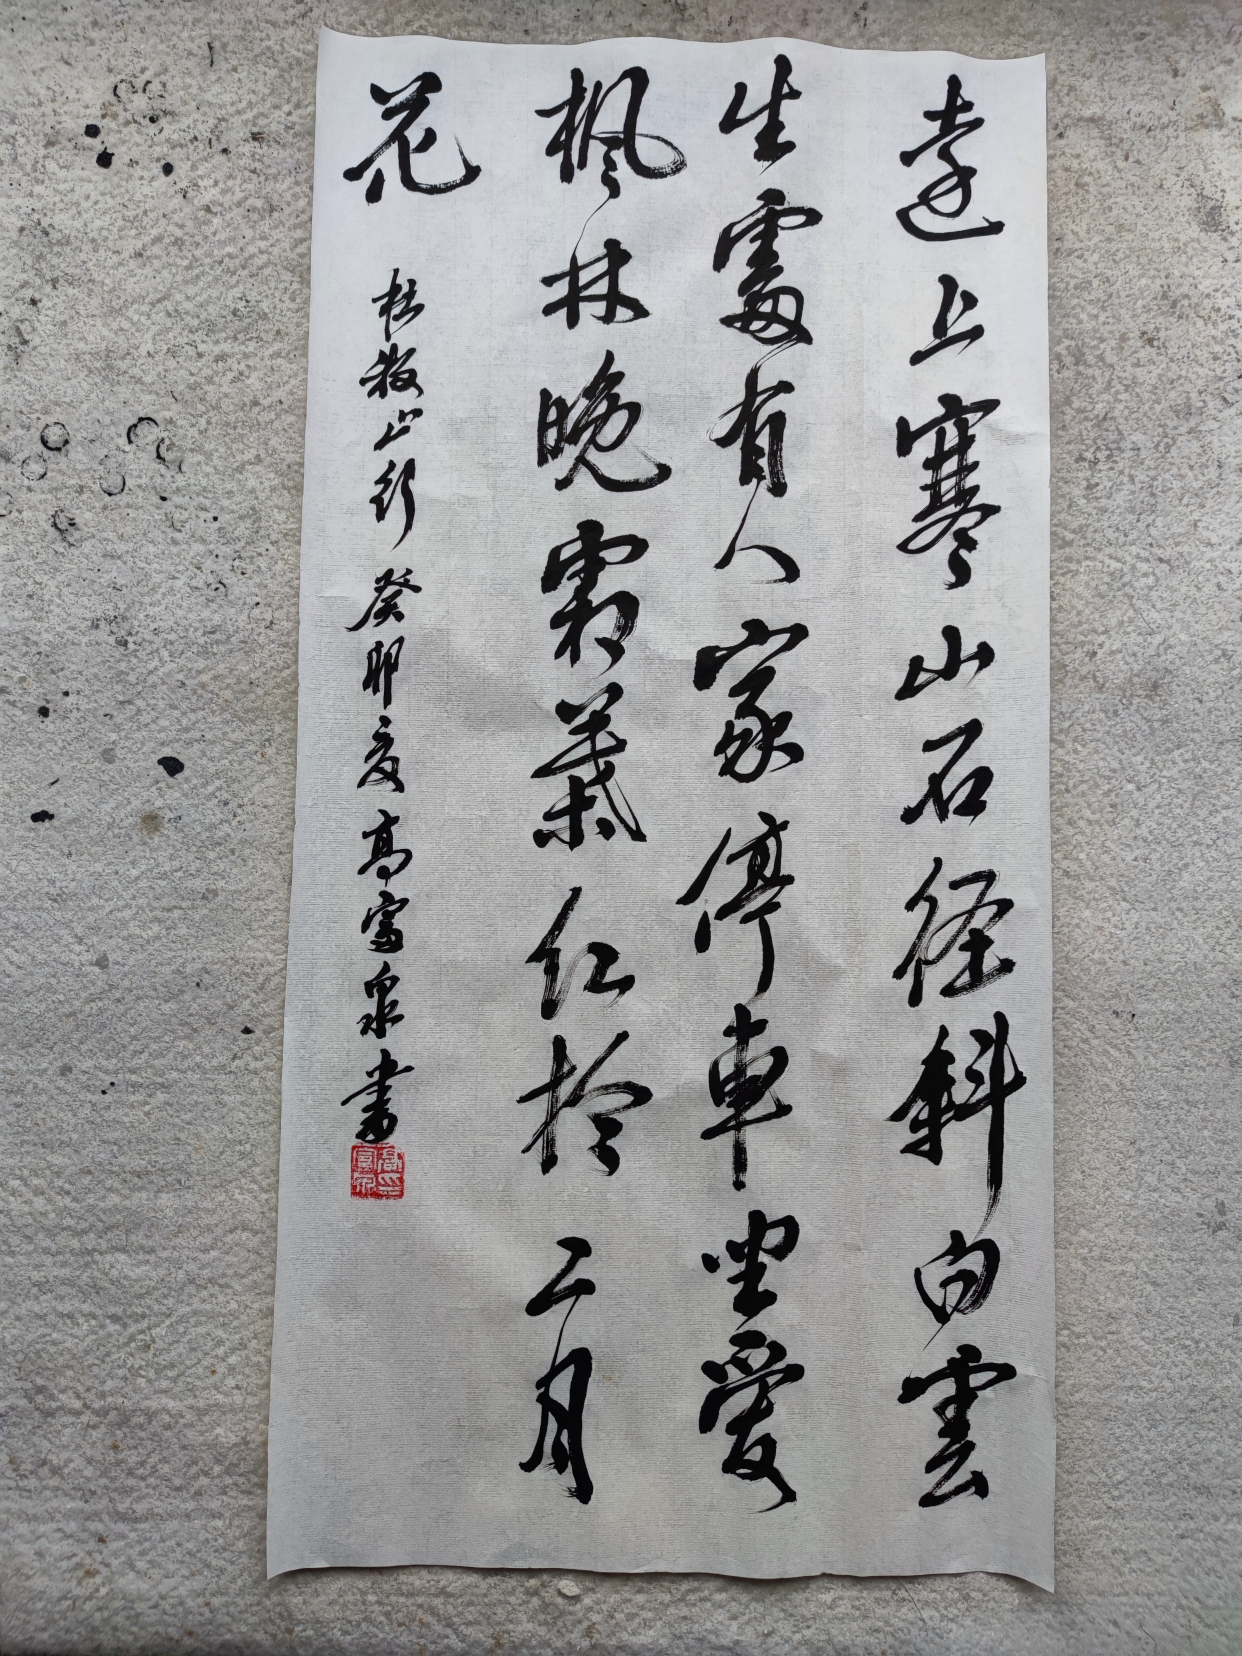 遠上寒山石径斜白雲
生處有人家停車坐愛
枫林晚霜葉红於二月
花
杜牧山行 癸卯夏高富泉书
高富泉印